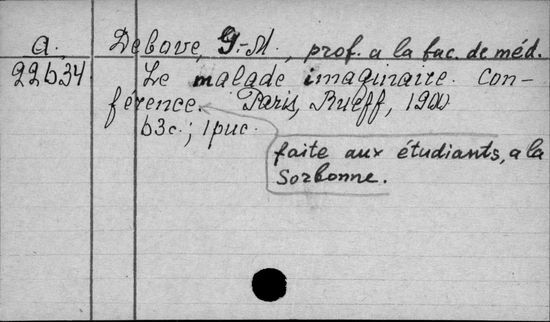 a. Debove, G.-M., prof. a la fac. de méd.
22b34 Le malade imaginaire. Con-
férence. Paris, Rueff, 1900
b3c.; 1рис.
faite aux étudiants, a la
Sorbonne.